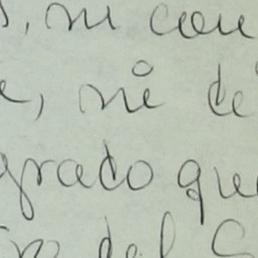 , ni con
, ni de
grado que
del